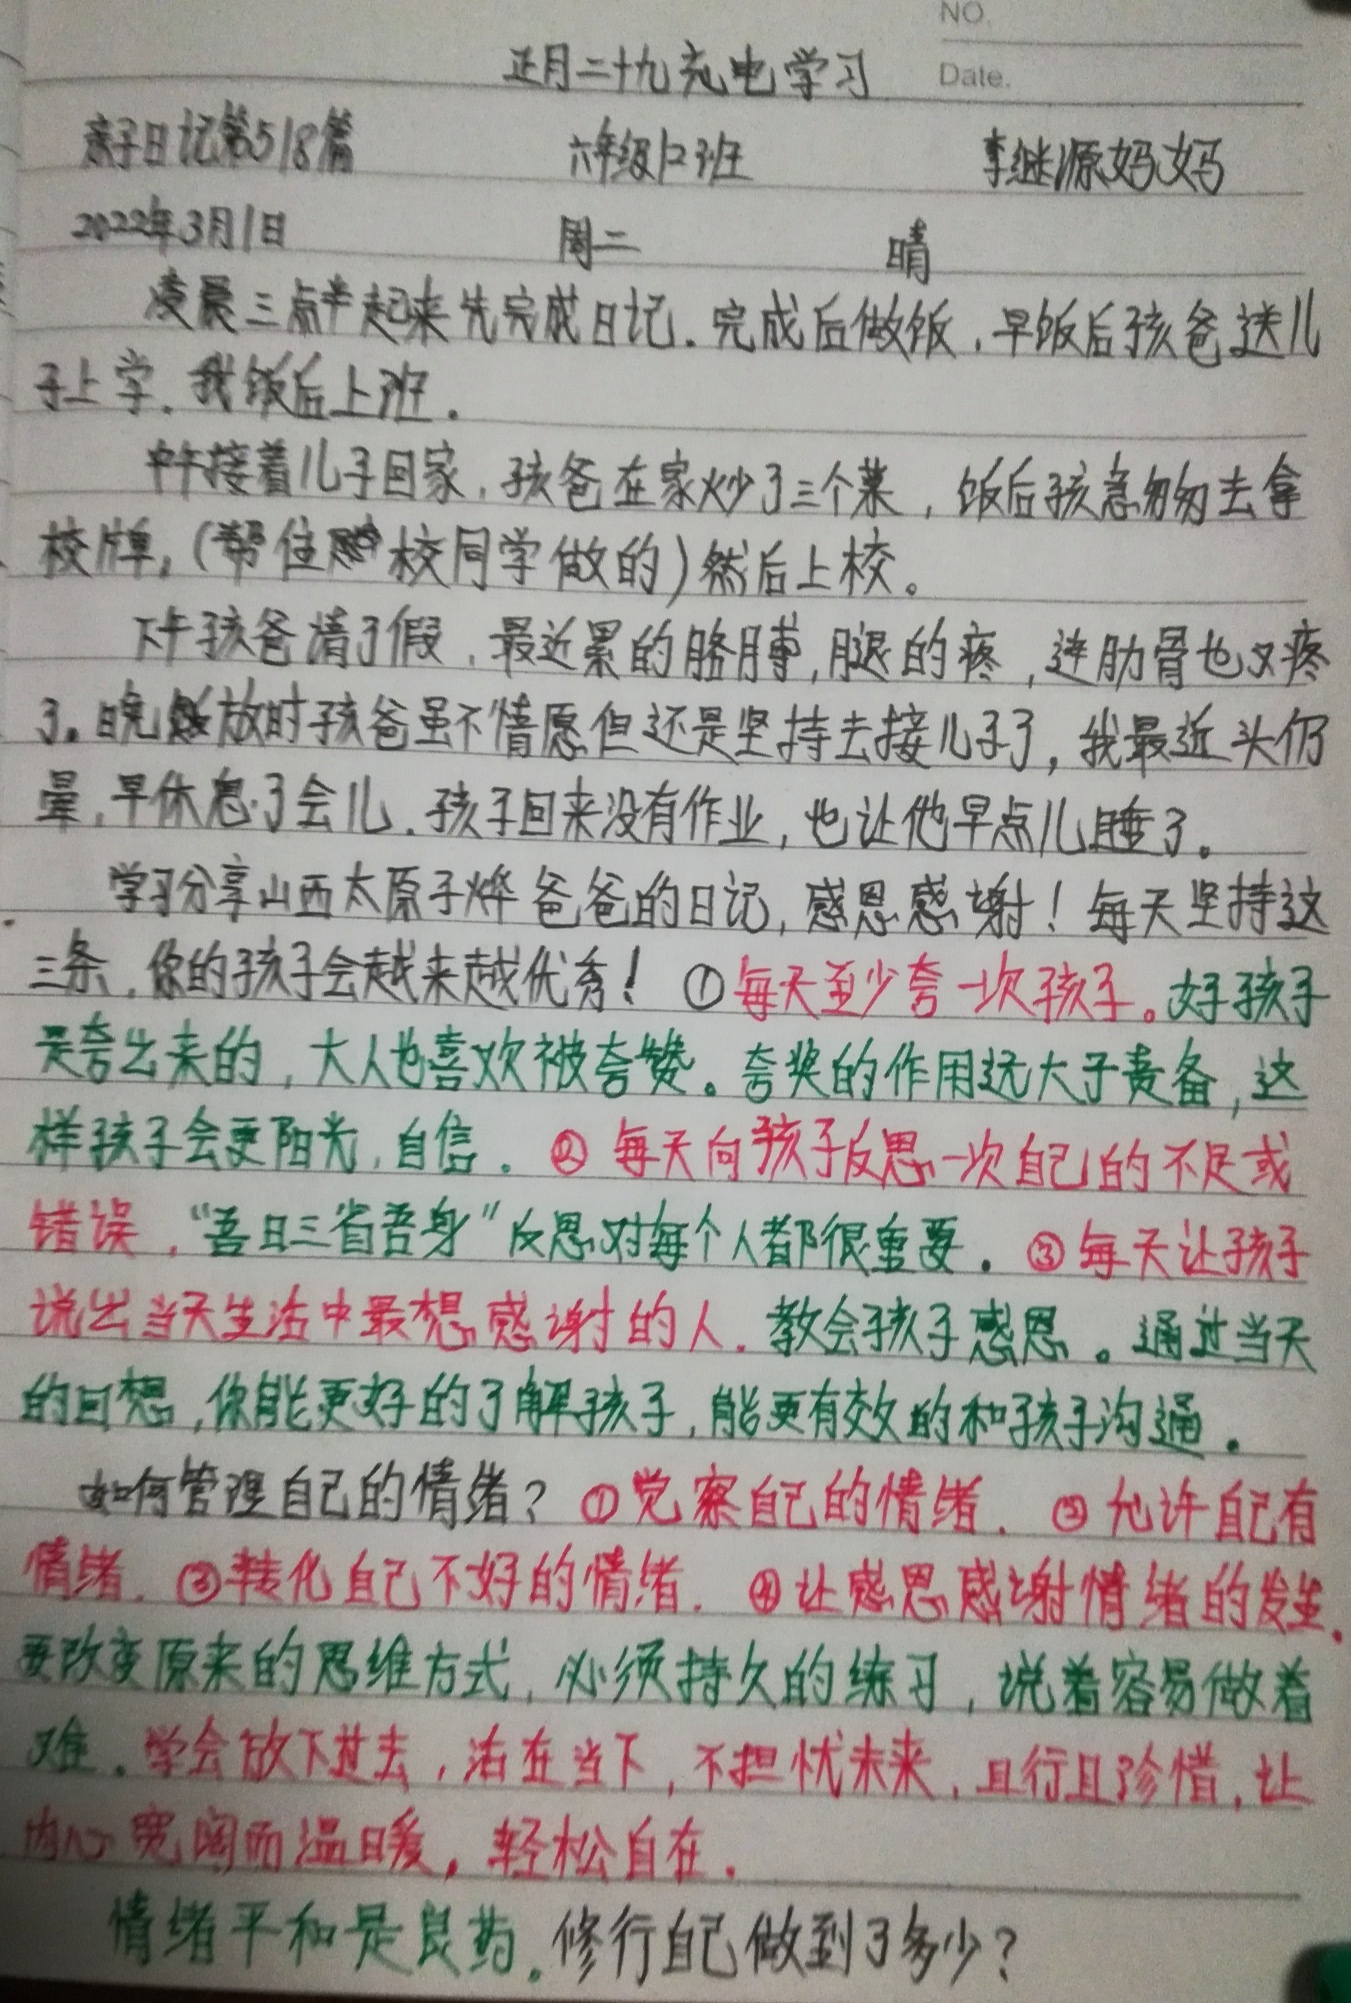 NO.
正月二十九充电学习
Date.
亲子日记第518篇 六年级12班 李继源妈妈
2022年3月1日 周二 晴
凌晨三点半起来先完成日记.完成后做饭,早饭后孩爸送儿
子上学.我饭后上班.
中午接着儿子回家,孩爸在家炒了三个菜,饭后孩急匆匆去拿
校牌,(帮住校同学做的)然后上校。
下午孩爸请了假,最近累的胳膊,腿的疼,连肋骨也又疼
了。晚放时孩爸虽不情愿但还是坚持去接儿子了,我最近头仍
晕,早休息了会儿.孩子回来没有作业,也让他早点儿睡了。
学习分享山西太原子烨爸爸的日记,感恩感谢!每天坚持这
三条,你的孩子会越来越优秀! ①每天至少夸一次孩子。好孩子
是夸出来的,大人也喜欢被夸赞。夸奖的作用远大于责备,这
样孩子会更阳光,自信。②每天向孩子反思一次自己的不足或
错误,“吾日三省吾身”反思对每个人都很重要。③每天让孩子
说出当天生活中最想感谢的人.教会孩子感恩。通过当天
的回想,你能更好的了解孩子,能更有效的和孩子沟通。
如何管理自己的情绪?①觉察自己的情绪. ②允许自己有
情绪.③转化自己不好的情绪. ④让感恩感谢情绪的发生.
要改变原来的思维方式,必须持久的练习,说着容易做着
难.学会放下过去,活在当下,不担忧未来,且行且珍惜,让
内心宽阔而温暖,轻松自在.
情绪平和是良药。修行自己做到了多少?